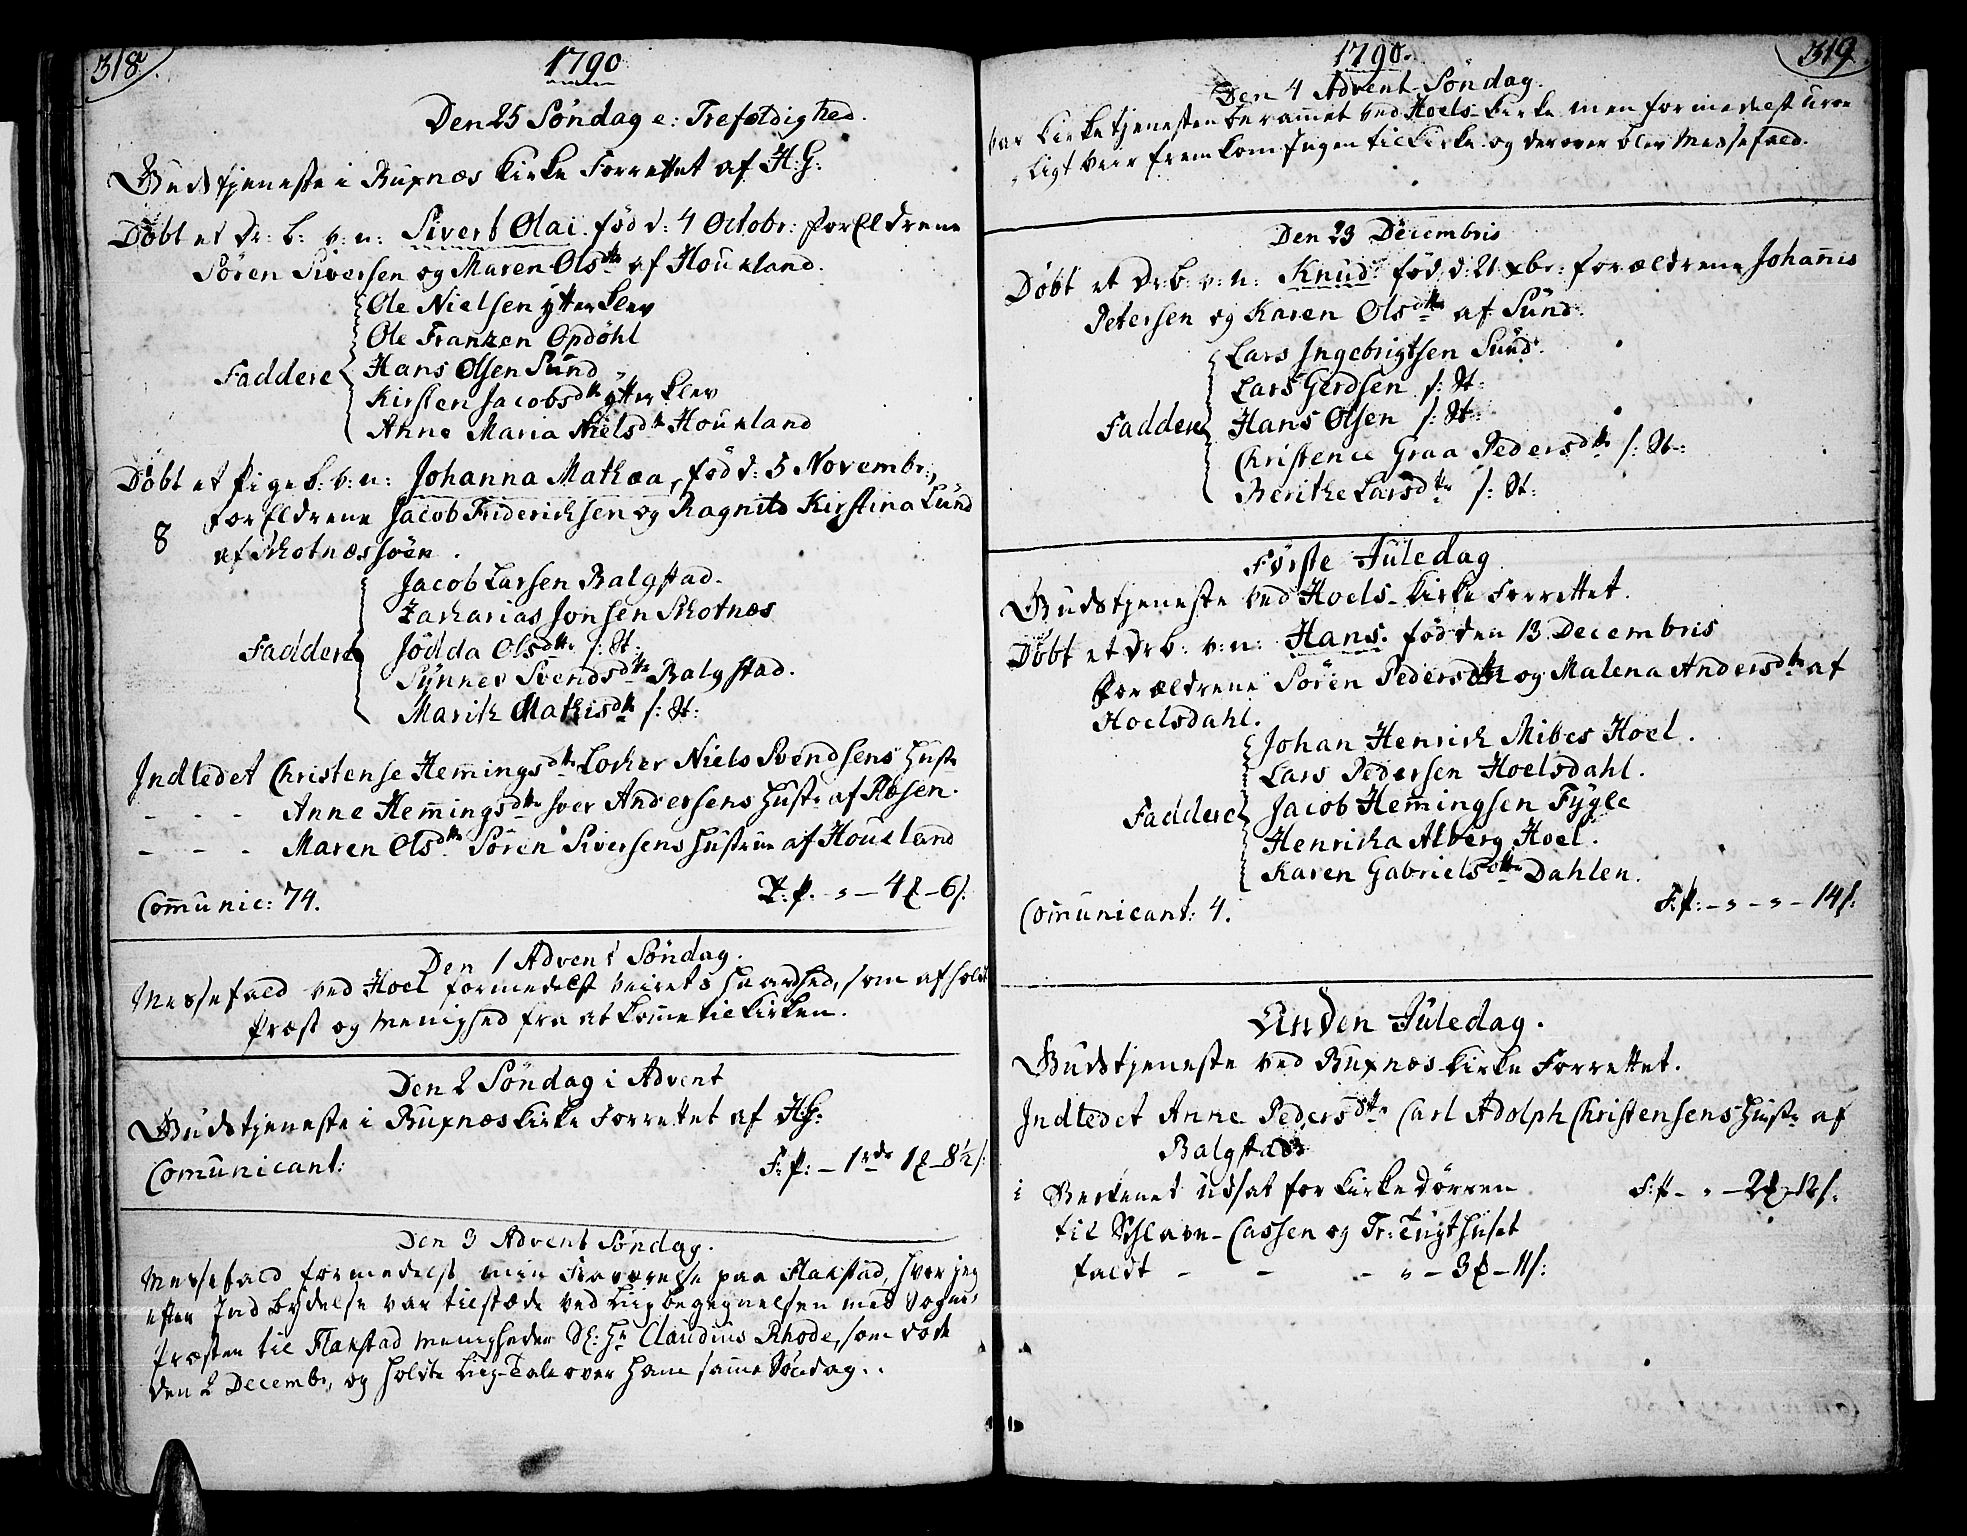 318.
1790
Den 25 Söndag e: Trefoldighed.
Gudstjeneste i Buxnæs Kirke Forrettet af H:G:
Döbt et Dr: b: v: n: Sivert Olai. föd d: 4 Octobr: forEldrene
Sören Siversen og Maren Olsdtr af Houkland.
Ole Nielsen ÿtterKlev
Ole Franzen Opdöhl
Faddere Hans Olsen Sund
Kirsten Jacobsdtr ÿtterKlev
Anne Maria Nielsdtr Houkland
Döbt et Pigeb: v: n: Johanna Mathæa, föd d: 5 Novembr:,
forEldrene Jacob Friderichsen og Ragnild Kirstina Lund
8 af Skotnæssöen.
Jacob Larsen Balgstad.
Zacharias Jonsen Skotnæs
Faddere Jödda Olsdtr /: St:
Sÿnnev Svendsdtr Balgstad.
Marith Mathisdtr /: St:
Indledet Christense Hemingsdtr Locker Niels Svendsens Hustr
- - - Anne Hemingsdtr Iver Andersens Hustr af Risen.
- - - Maren Olsdtr Sören Siversens Hustrue af Houkland
Comunic: 74. F: P. - " - 4 - 6 /:
Den 1 Advent Söndag.
Messefald ved Hoel formedelst Veirets Haardhed, som afholdt
Præst og Menighed fra at komme til Kirken.
Den 2 Söndag i Advent
Gudstjeneste i Buxnæs Kirke Forrettet af HG:
Comunicant: F: P: - 1 rdr 1 - 8½ /:
Den 3 Advent Söndag.
Messefald formedelst min Fraværelse paa Flakstad, hvor jeg
efter Indbydelse var tilstæde ved Liigbegegnelsen med Sogne-
Præsten til Flakstad Menigheder Sl: Hr Claudius Rhode, som döde
den 2 Decembr, og holdte Liig-Tale over ham samme Söndag..
319
1790.
Den 4 Advent-Söndag.
Var Kirketjenesten berammet ved Hoels-Kirke men formedelst Uroe
ligt Veir fremkom Ingen til Kirke og derover blev Messefald.
Den 23 Decembris
Döbt et Dr:b: v: n: Knud föd d: 21 xbr: forældrene Johannis
Petersen og Karen Olsdtr af Sund.
Lars Ingebrigtsen Sund.
Lars Gerdsen /: St:
Faddere Hans Olsen /: St:
Christence Graa Pedersdtr /: St:
Berithe Larsdtr /: St:
Förste Juledag
Gudstjeneste ved Hoels-Kirke Forrettet.
Döbt et Drb: v: n: Hans. föd den 13 Decembris
Forældrene Sören Pedersen og Malena Andersdtr af
Hoelsdahl.
Johan Henrich Mibes Hoel.
Lars Pedersen Hoelsdahl.
Faddere Jacob Hemingsen Fÿgle
Henricha Alberg Hoel.
Karen Gabrielsdtr Dahlen.
Comunicant: 4. F: P: - " - " - 14 /:
Anden Juledag.
Gudstjeneste ved Buxnæs-Kirke Forrettet.
Indledet Anne Pedersdtr Carl Adolph Christensens Hustr af
Balgstad
i Bekkenet udsat for Kirkedörren F: P - " - 2 - 12 /:
til Schlave-Cassen og Tr: Tugthuset
faldt - - - " - 3 - 11 /: